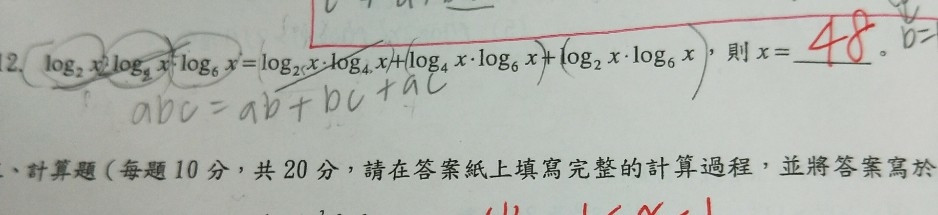 12. log₂ x · log₄ x · log₆ x = log₂ x · log₄ x + log₄ x · log₆ x + log₂ x · log₆ x，則 x = 48。
b=
abc = ab + bc + ac
、計算題（每題 10 分，共 20 分，請在答案紙上填寫完整的計算過程，並將答案寫於